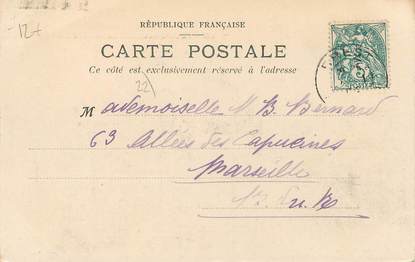 12+
RÉPUBLIQUE FRANÇAISE
CARTE POSTALE
Ce côté est exclusivement réservé à l'adresse
22
Mademoiselle M B. Bernard
63 Allées des Capucines
Marseille
B. du R